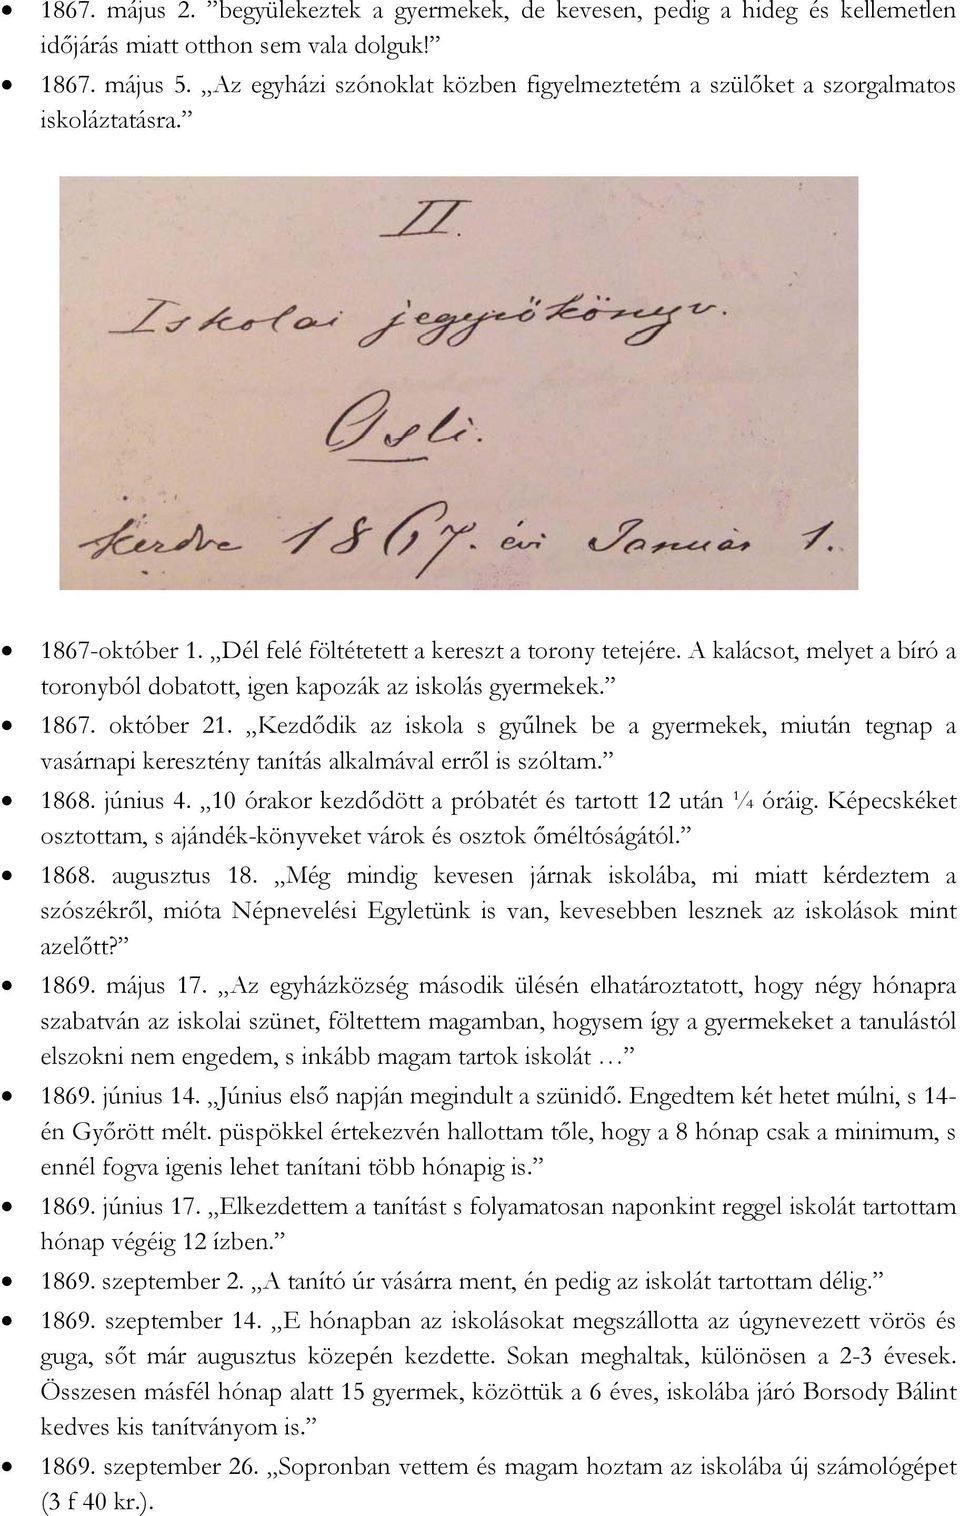 • 1867. május 2. ”begyülekeztek a gyermekek, de kevesen, pedig a hideg és kellemetlen
időjárás miatt otthon sem vala dolguk!”
• 1867. május 5. „Az egyházi szónoklat közben figyelmeztetém a szülőket a szorgalmatos
iskoláztatásra.”
II.
Iskolai jegyzőkönyv.
Osli.
Kezdve 1867. évi Január 1.
• 1867-október 1. „Dél felé föltétetett a kereszt a torony tetejére. A kalácsot, melyet a bíró a
toronyból dobatott, igen kapozák az iskolás gyermekek.”
• 1867. október 21. „Kezdődik az iskola s gyűlnek be a gyermekek, miután tegnap a
vasárnapi keresztény tanítás alkalmával erről is szóltam.”
• 1868. június 4. „10 órakor kezdődött a próbatét és tartott 12 után ¼ óráig. Képecskéket
osztottam, s ajándék-könyveket várok és osztok őméltóságától.”
• 1868. augusztus 18. „Még mindig kevesen járnak iskolába, mi miatt kérdeztem a
szószékről, mióta Népnevelési Egyletünk is van, kevesebben lesznek az iskolások mint
azelőtt?”
• 1869. május 17. „Az egyházközség második ülésén elhatároztatott, hogy négy hónapra
szabatván az iskolai szünet, föltettem magamban, hogysem így a gyermekeket a tanulástól
elszokni nem engedem, s inkább magam tartok iskolát …”
• 1869. június 14. „Június első napján megindult a szünidő. Engedtem két hetet múlni, s 14-
én Győrött mélt. püspökkel értekezvén hallottam tőle, hogy a 8 hónap csak a minimum, s
ennél fogva igenis lehet tanítani több hónapig is.”
• 1869. június 17. „Elkezdettem a tanítást s folyamatosan naponkint reggel iskolát tartottam
hónap végéig 12 ízben.”
• 1869. szeptember 2. „A tanító úr vásárra ment, én pedig az iskolát tartottam délig.”
• 1869. szeptember 14. „E hónapban az iskolásokat megszállotta az úgynevezett vörös és
guga, sőt már augusztus közepén kezdette. Sokan meghaltak, különösen a 2-3 évesek.
Összesen másfél hónap alatt 15 gyermek, közöttük a 6 éves, iskolába járó Borsody Bálint
kedves kis tanítványom is.”
• 1869. szeptember 26. „Sopronban vettem és magam hoztam az iskolába új számológépet
(3 f 40 kr.).